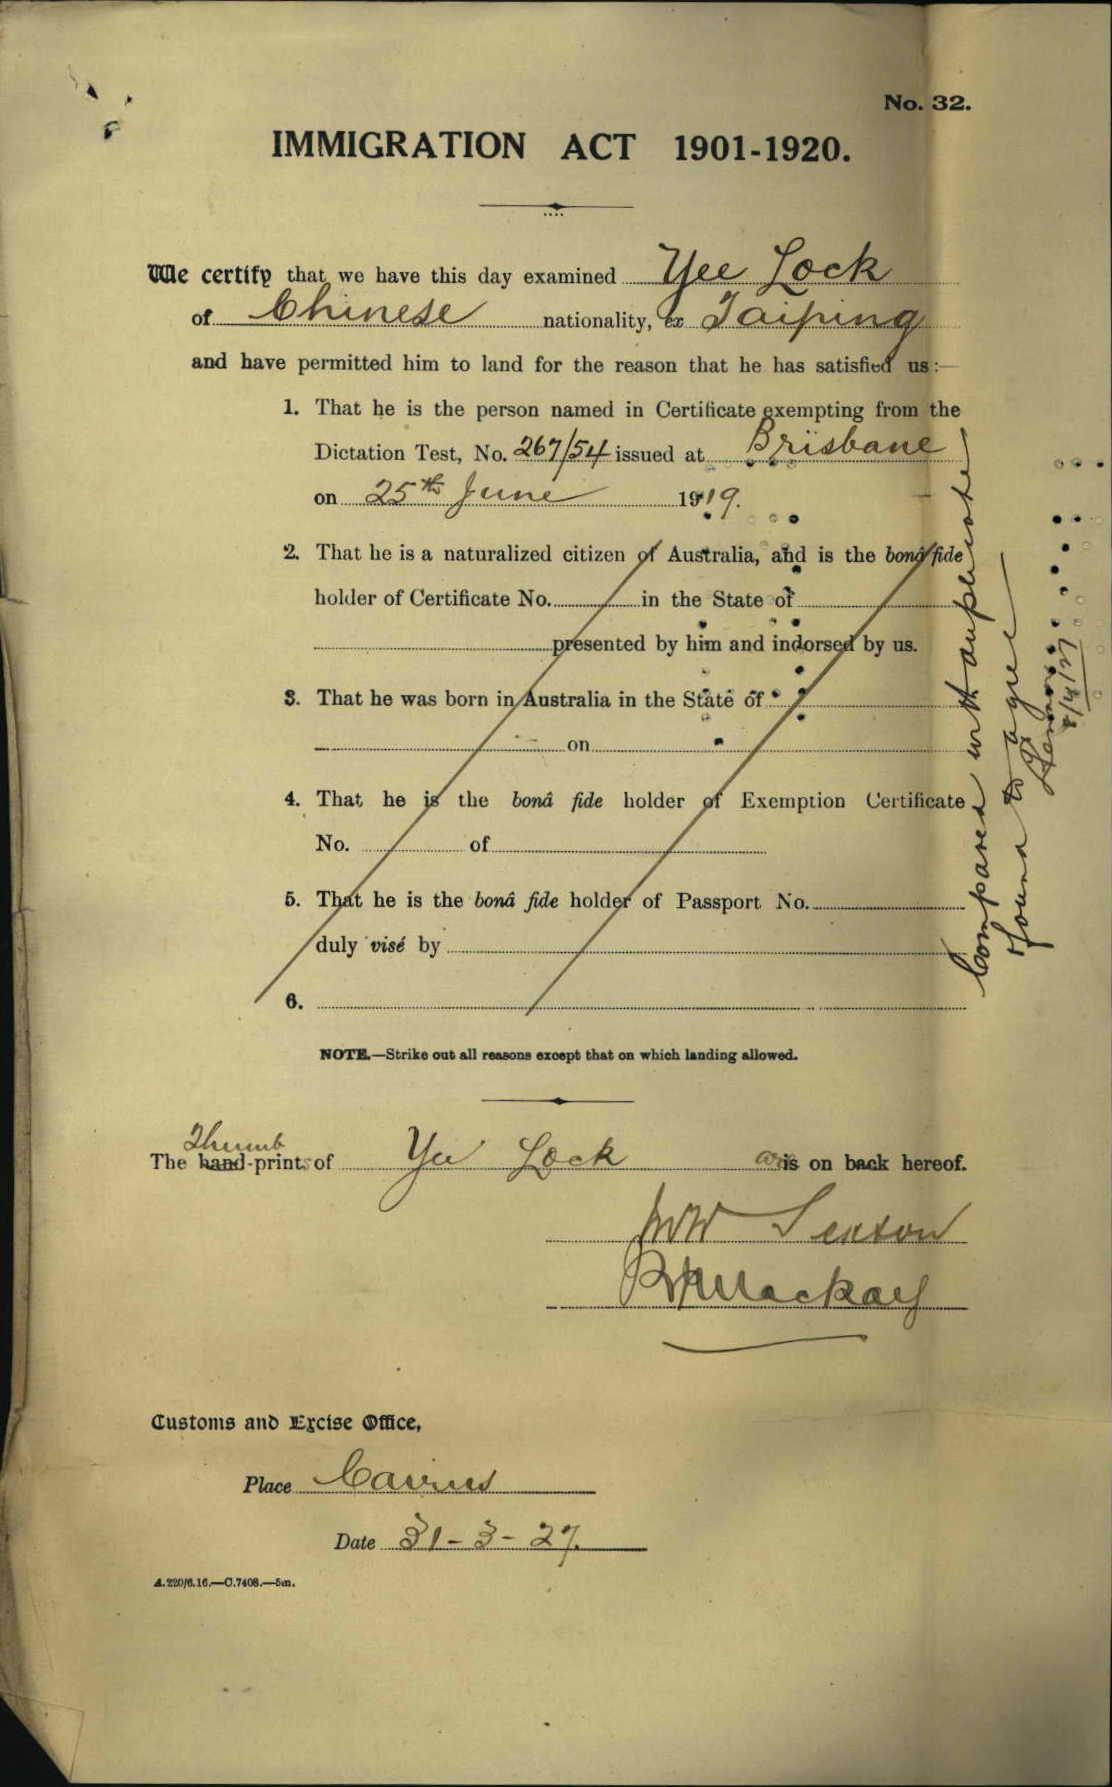 No. 32.
IMMIGRATION ACT 1901-1920.
We certify that we have this day examined Yee Lock
of Chinese nationality, ex Taiping
and have permitted him to land for the reason that he has satisfied us:—
1. That he is the person named in Certificate exempting from the
Dictation Test, No. 267/54 issued at Brisbane
on 25th June 1919.
2. That he is a naturalized citizen of Australia, and is the bonâ fide
holder of Certificate No. in the State of
presented by him and indorsed by us.
3. That he was born in Australia in the State of
on
4. That he is the bonâ fide holder of Exemption Certificate
No. of
5. That he is the bonâ fide holder of Passport No.
duly visé by
6.
NOTE.—Strike out all reasons except that on which landing allowed.
Thumb
The hand-prints of Yee Lock are is on back hereof.
WW Sexton
Mackay
Customs and Excise Office,
Place Cairns
Date 31-3-27.
A.220/6.16.—C.7408.—5m.
Compared with duplicate
found to agree